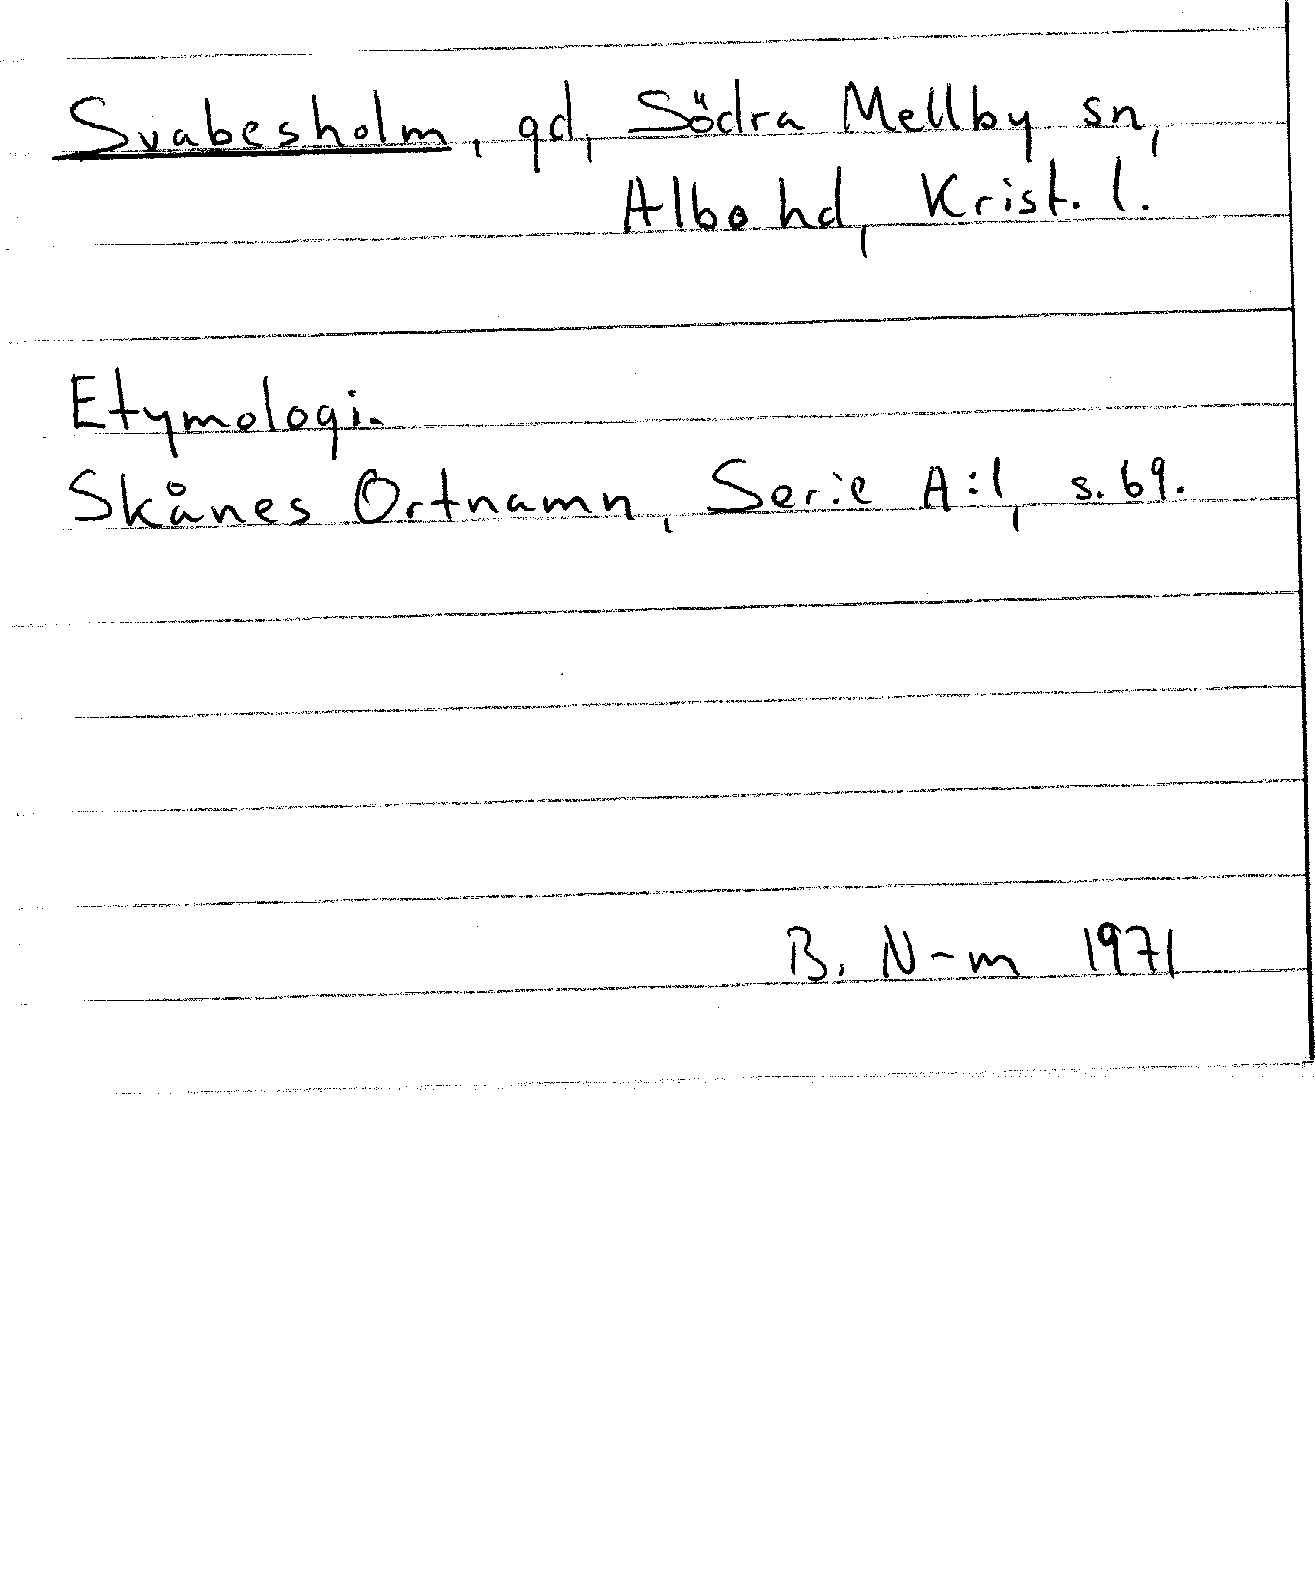 Svabesholm, gd, Södra Mellby sn,
Albo hd, Krist. l.
Etymologi.
Skånes Ortnamn, Serie A:1, s. 69.
B. N-m 1971